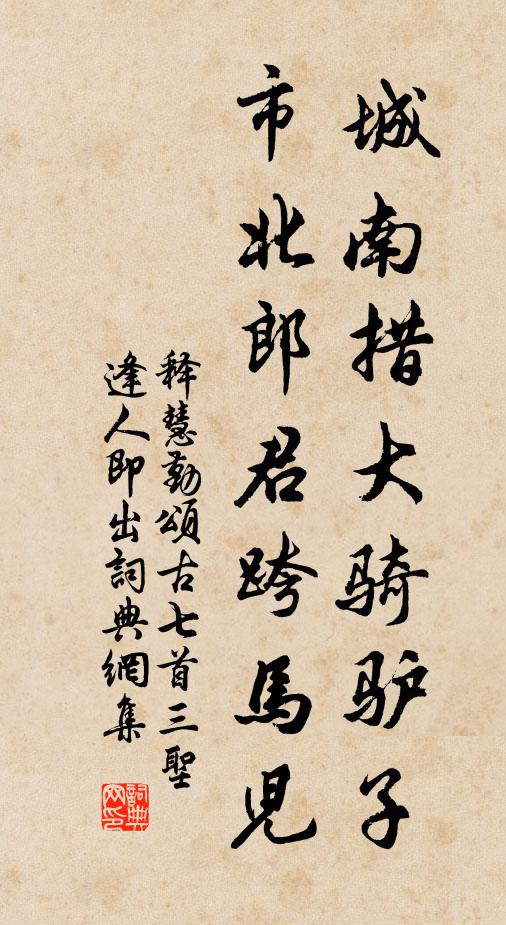 城南措大骑驴子
市北郎君跨馬児
释慧勤頌古七首三聖
逢人即出詞典網集
詞典网印